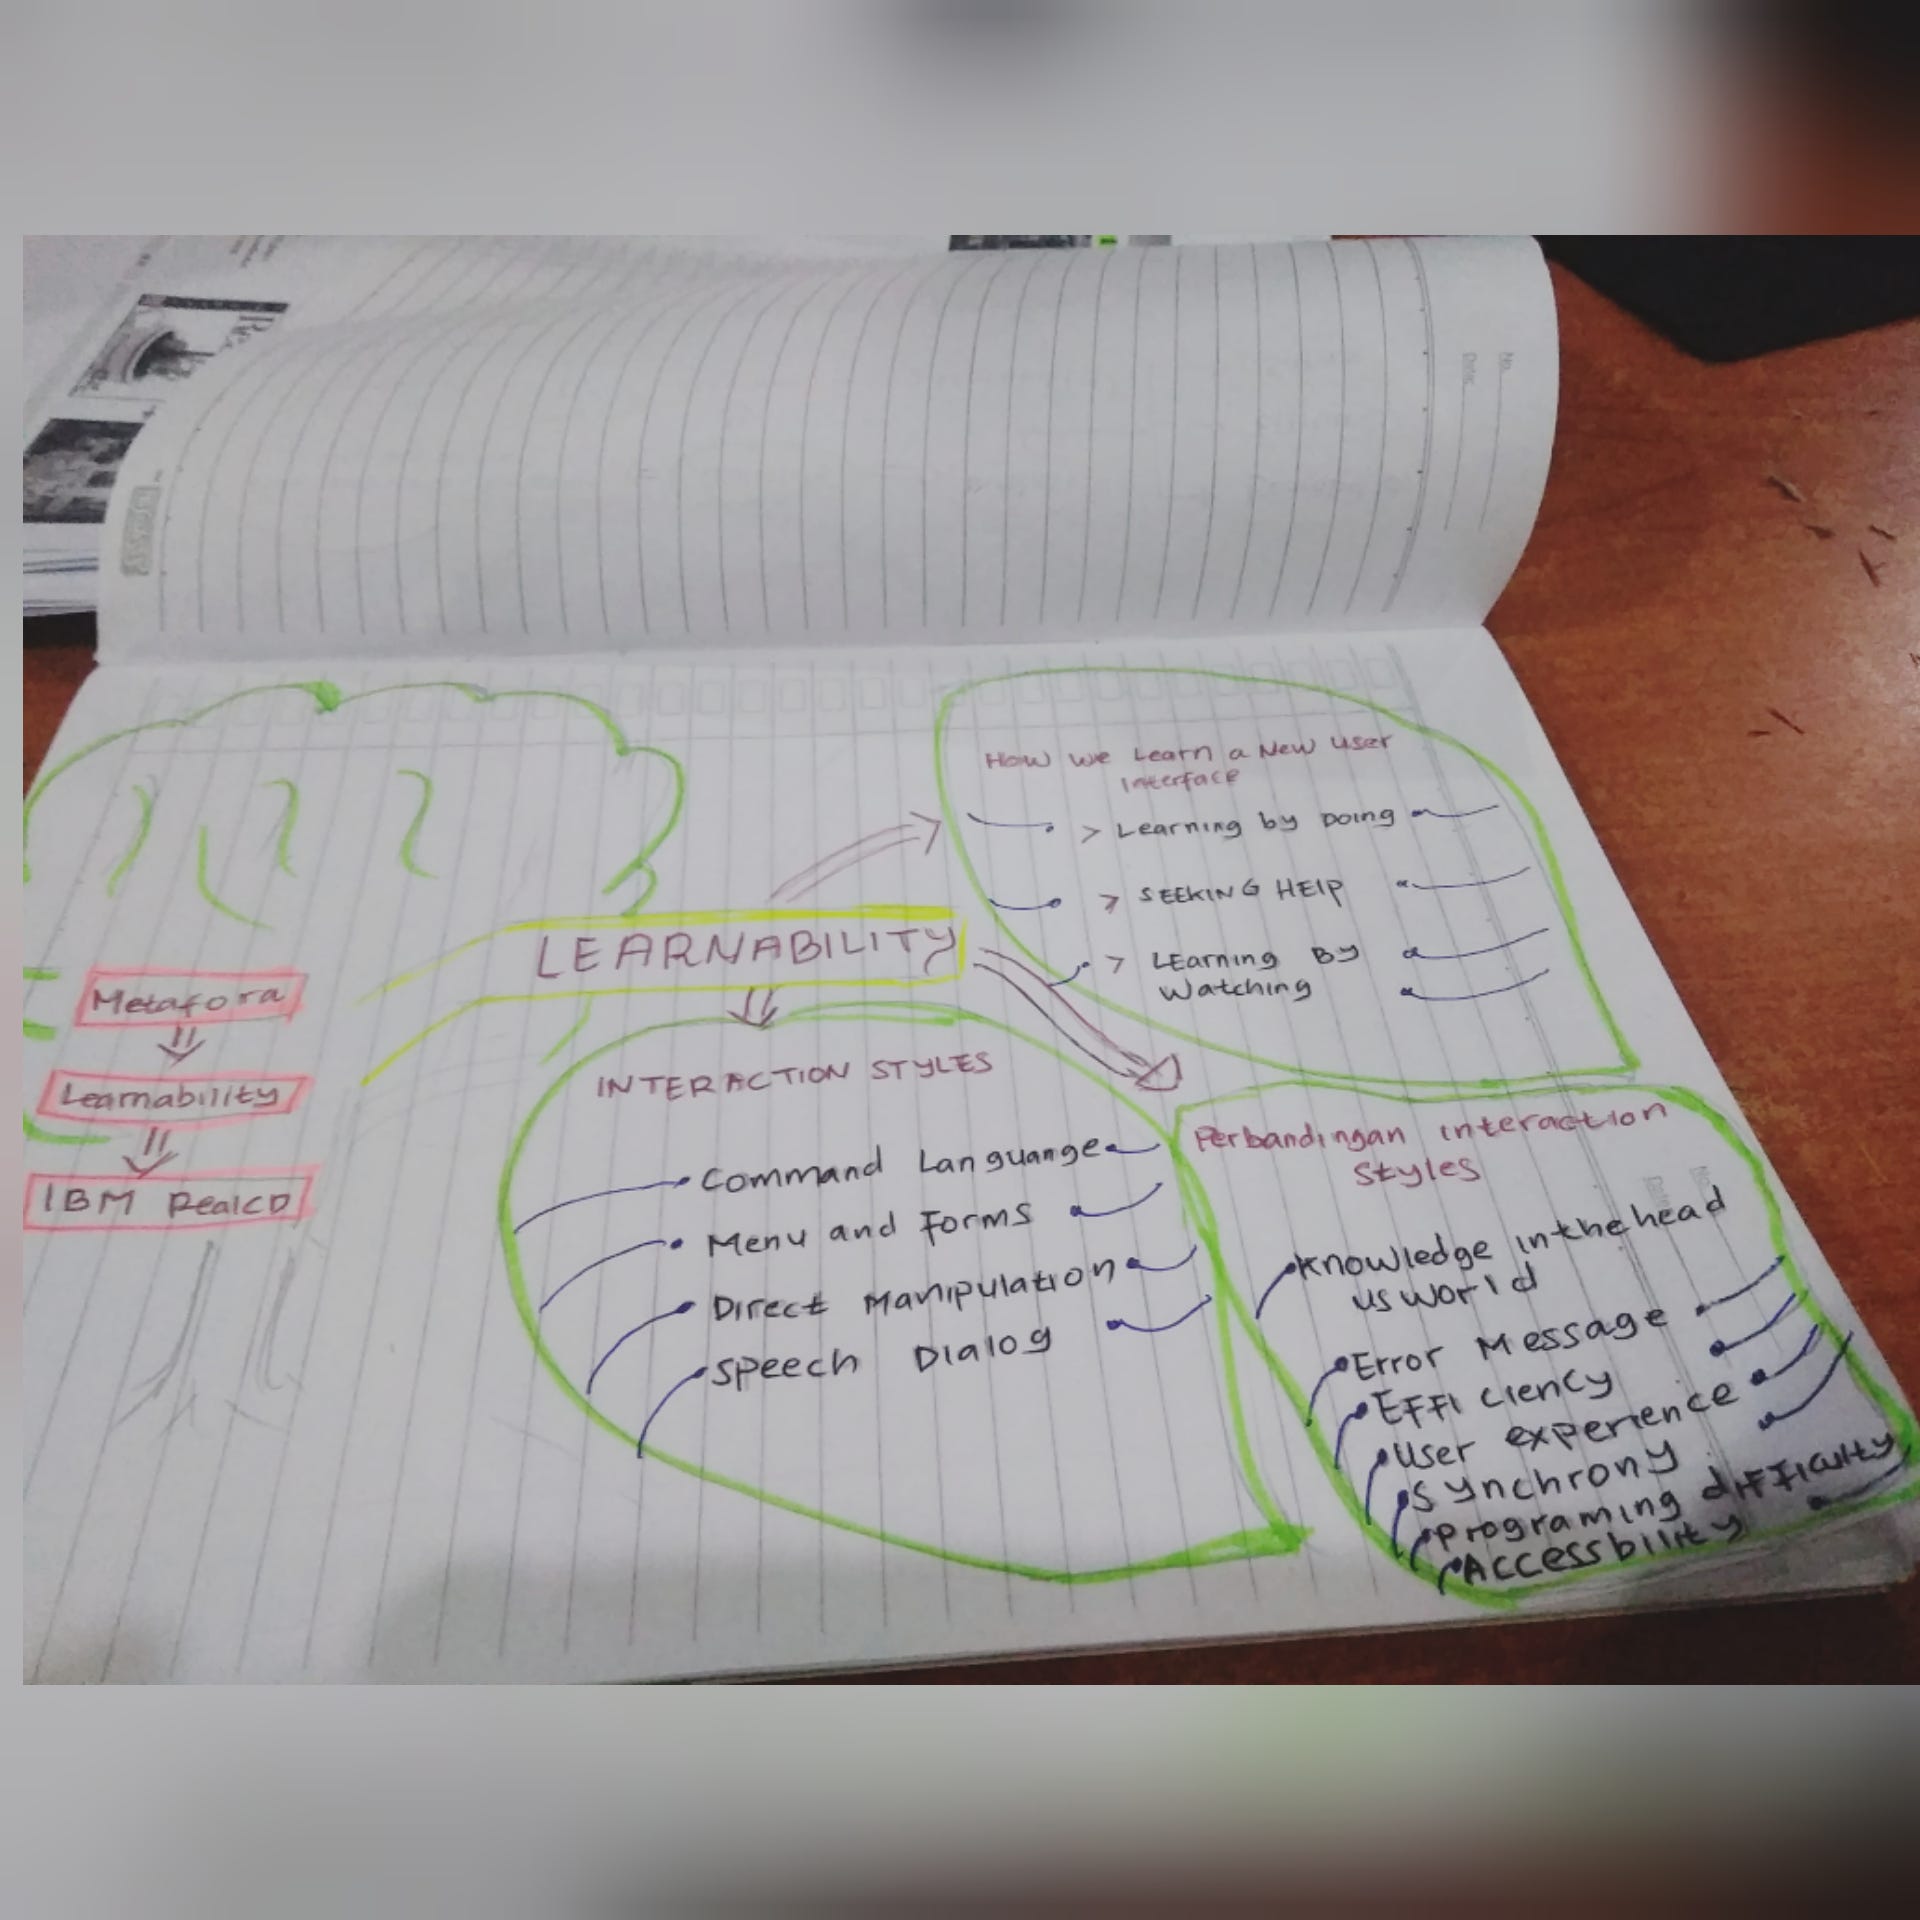 Metafora
Learnability
IBM RealCD
LEARNABILITY
How we Learn a New User
Interface
> Learning by Doing
> SEEKING HELP
> LEarning By
Watching
INTERACTION STYLES
Command Languange
Menu and Forms
Direct Manipulation
Speech Dialog
Perbandingan interaction
Styles
Knowledge in the head
us world
Error Message
EFFIciency
User experience
Synchrony
programing difficulty
Accessbility
No.
Date: